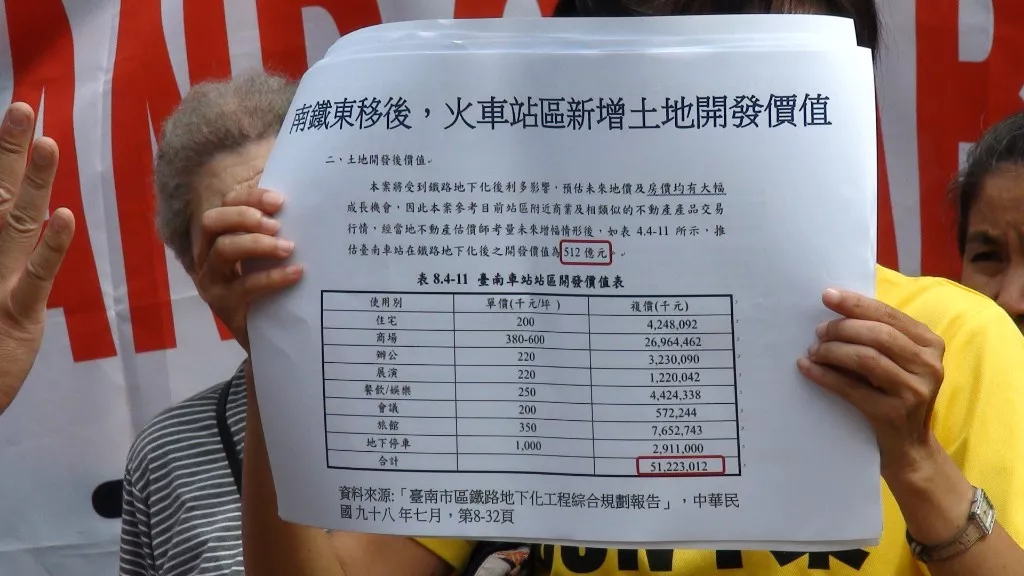 南鐵東移後，火車站區新增土地開發價值
二、土地開發後價值
本案將受到鐵路地下化後利多影響，預估未來地價及房價均有大幅
成長機會，因此本案參考目前站區附近商業及相類似的不動產產品交易
行情，經當地不動產估價師考量未來增幅情形後，如表 4.4-11 所示，推
估臺南車站在鐵路地下化後之開發價值為512 億元。
表 8.4-11 臺南車站站區開發價值表
使用別 單價(千元/坪) 複價(千元)
住宅 200 4,248,092
商場 380-600 26,964,462
辦公 220 3,230,090
展演 220 1,220,042
餐飲/娛樂 250 4,424,338
會議 200 572,244
旅館 350 7,652,743
地下停車 1,000 2,911,000
合計 51,223,012
資料來源:「臺南市區鐵路地下化工程綜合規劃報告」，中華民
國 九十八 年七月，第8-32頁